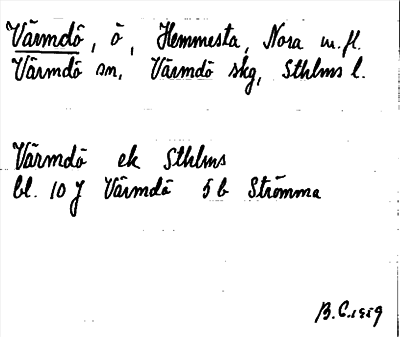 Värmdö, ö, Hemmesta, Nora m.fl.
Värmdö sn, Värmdö skg, Sthlms l.
Värmdö ek Sthlms
bl. 10 J Värmdö 5 b Strömma
B.C. 1959